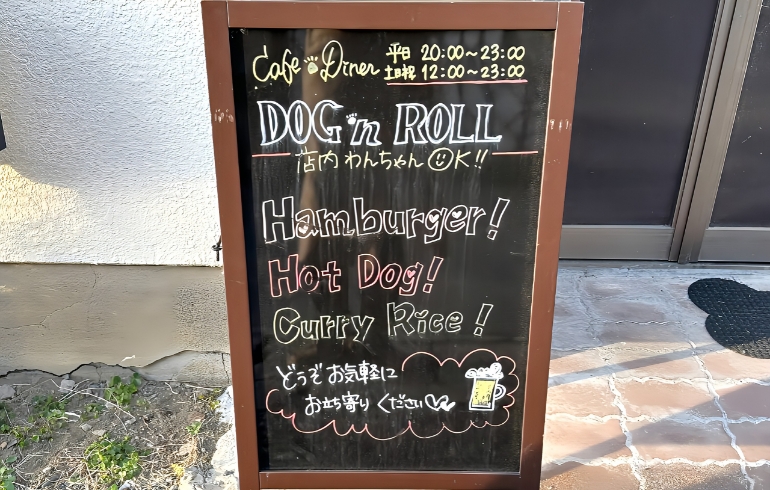 Cafe Diner 平日 20:00~23:00
土日祝 12:00~23:00
DOG 'n ROLL
店内 わんちゃん OK!!
Hamburger!
Hot Dog!
Curry Rice!
どうぞ お気軽に
お立ち寄り ください